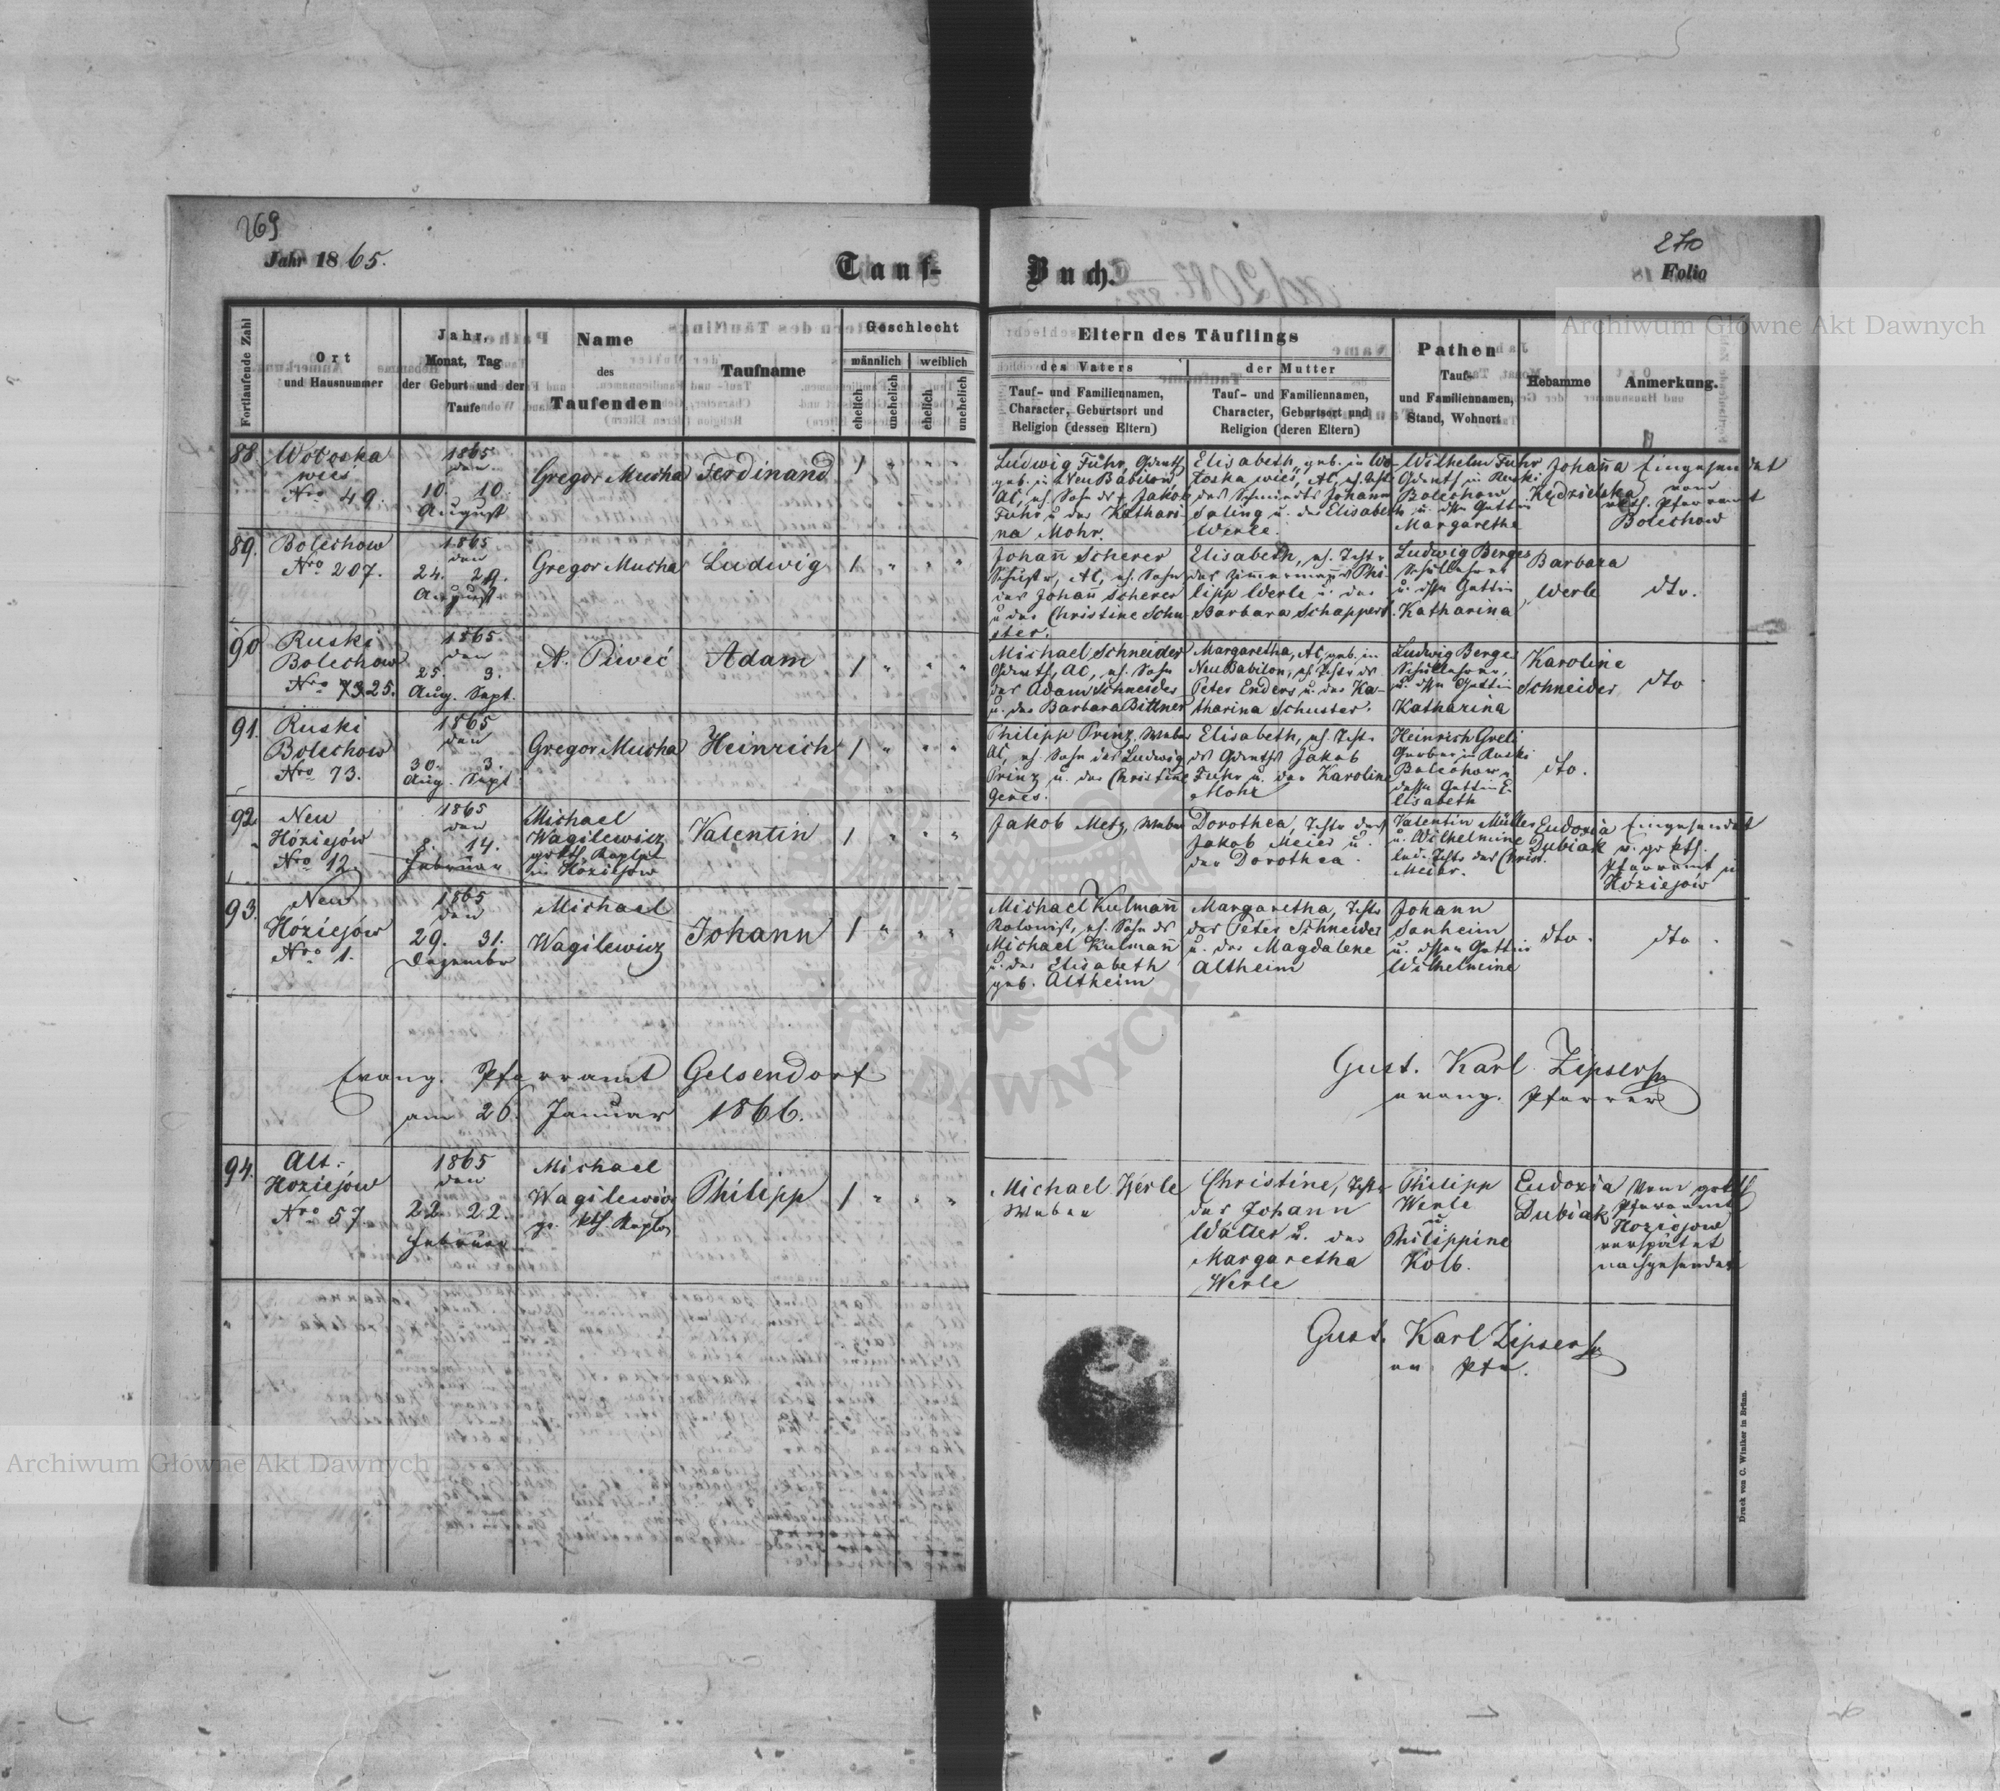 269
Jahr 1865.
Tauf-
Buch.
270
Folio
Archiwum Główne Akt Dawnych
Fortlaufende Zahl
Ort
und Hausnummer
Jahr,
Monat, Tag
der Geburt und der
Taufe
Name
des
Taufenden
Taufname
Geschlecht
männlich
weiblich
ehelich
unehelich
ehelich
unehelich
Eltern des Täuflings
des Vaters
Tauf- und Familiennamen,
Character, Geburtsort und
Religion (dessen Eltern)
der Mutter
Tauf- und Familiennamen,
Character, Geburtsort und
Religion (deren Eltern)
Pathen
Tauf-
und Familiennamen,
Stand, Wohnort
Hebamme
Anmerkung.
88
Wołoska
wieś
Nro 49.
1865
den
10. 10.
August
Gregor Mucha
Ferdinand
1 " " "
Ludwig Fuhr, Grundth
geb. in Neu Babilon,
AC, eh. Sohn des + Jakob
Fuhr u. der Kathari
na Mohr.
Elisabeth, geb. in Wo-
łoska wieś, AC, eh. Tocht
des Schmieds Johann
Saling u. der Elisabeth
Werle.
Wilhelm Fuhr
Bolechow
u. dssn Gattin
Margarethe
Johanna
Kędzielska
Eingesendet
vom
Pfarramt
Bolechow
89.
Bolechow
Nro 207.
1865
den
24. 29.
August
Gregor Mucha
Ludwig
1 " " "
Johann Scherer
AC, eh. Sohn
des Johann Scherer
u. der Christine Schu
ster.
Elisabeth, eh. Tocht
des Zimmermanns Phi
lipp Werle u. der
Barbara Schappert.
Ludwig Berger
Schullehrer
u. dssn Gattin
Katharina
Barbara
Werle
dto.
90
Ruski
Bolechow
Nro 25.
1865.
den
25. 3.
Aug. Sept.
A. Piweć
Adam
1 " " "
Michael Schneider
Grundth, AC, eh. Sohn
des Adam Schneider
u. der Barbara Bittner
Margaretha, AC, geb. in
Neu Babilon, eh. Tocht. des
Peter Enders u. der Ka-
tharina Schuster.
Ludwig Berger
Schullehrer,
u. dssn Gattin
Katharina
Karoline
Schneider
dto
91.
Ruski
Bolechow
Nro 73.
1865
den
30. 3.
Aug. Sept
Gregor Mucha
Heinrich
1 " " "
Philipp Prinz, Weber
AC, eh. Sohn des Ludwig
Prinz u. der Christine
Geres.
Elisabeth, eh. Tocht
des Grundths Jakob
Fuhr u. der Karoline
Mohr
Heinrich Greli
Gerber in Ruski
Bolechow u.
dessn Gattin E-
lisabeth
dto.
92.
Neu
Hóziejów
Nro 12.
1865
den
8. 14.
Februar
Michael
Wagilewicz
gr kth. Kaplan
in Hóziejów
Valentin
1 " " "
Jakob Metz, Weber
Dorothea, Tochter des
Jakob Meier u.
der Dorothea.
Valentin Müller
u. Wilhelmine
led. Tocht. des Christ.
Meier.
Eudoxia
Dubiak
Eingesendet
v. gr kth.
Pfarramt in
Hóziejów
93.
Neu
Hóziejów
Nro 1.
1865
den
29. 31.
Dezember
Michael
Wagilewicz
Johann
1 " " "
Michael Kulmann
Kolonist, eh. Sohn des
Michael Kulmann
u. der Elisabeth
geb. Altheim
Margaretha, Tochter
des Peter Schneider
u. der Magdalene
Altheim
Johann
Sanheim
u. dssen Gattin
Wilhelmine
dto.
dto.
Evang. Pfarramt Gelsendorf
am 26. Januar 1866.
Gust. Karl Zipser
evang. Pfarrer
94.
Alt-
Hoziejów
Nro 57.
1865
den
22. 22.
Februar
Michael
Wagilewicz
gr. kth. Kaplan
Philipp
1 " " "
Michael Werle
Weber
Christine, Tocht.
des Johann
Walter u. der
Margaretha
Werle
Philipp
Werle
u.
Philippine
Kolb.
Eudoxia
Dubiak
Vom gr kth
Pfarramt
Hoziejow
verspätet
nachgesendet
Gust. Karl Zipser
ev. Pfr.
Archiwum Główne Akt Dawnych
Druck von C. Winiker in Brünn.